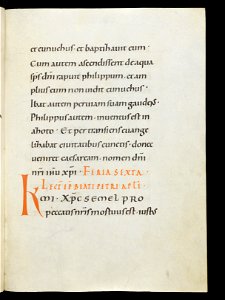 et eunuchus et baptizavit eum ·
Cum autem ascendissent de aqua
sp̄s dn̄i rapuit philippum · et am
plius eum non vidit eunuchus ·
Ibat autem per viam suam gaudens ·
Philippus autem · inventus est in
azoto · Et per transiens evange
lizabat civitatibus cunctis · donec
veniret caesaream · nomen dn̄i
nr̄i ihū xp̄i · FERIA SEXTA ·
LECT EP̄ BEATI PETRI APL̄I
KMI · XP̄C SEMEL PRO
peccatis nr̄is mortuus est · iustus